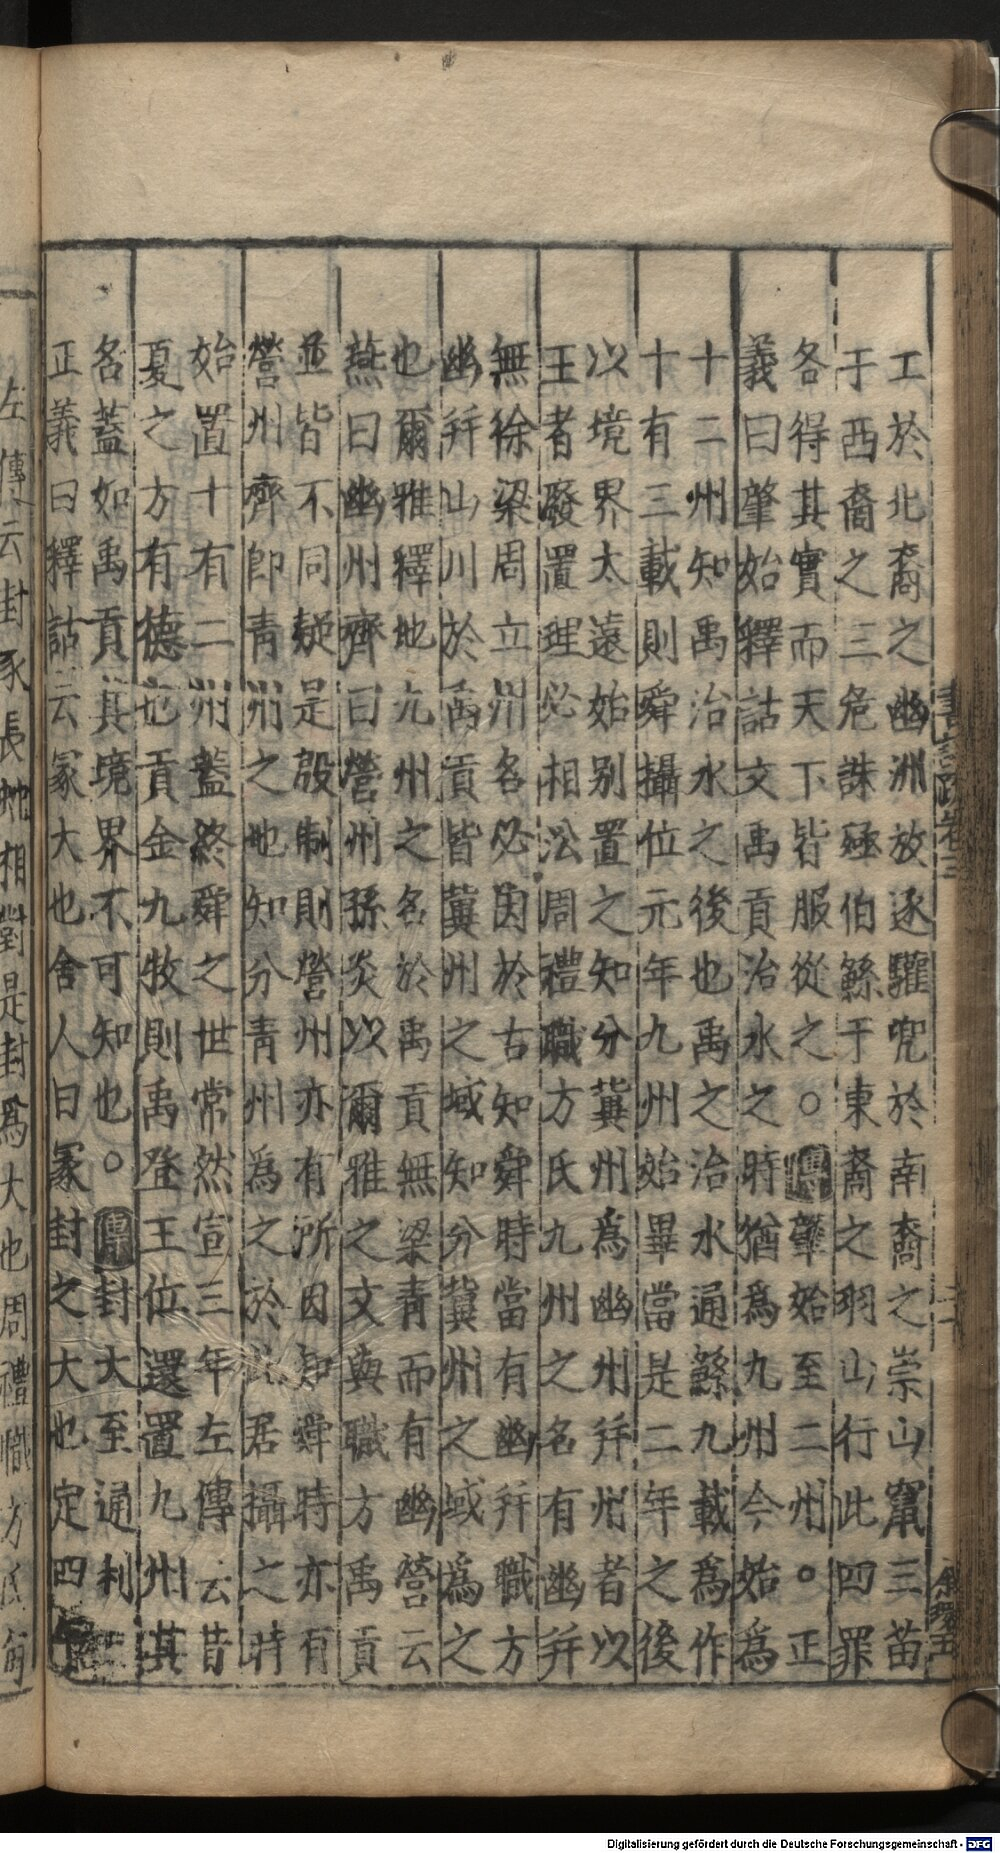 工於北裔之幽洲放逐驩兜於南裔之崇山竄三苗
于西裔之三危誅殛伯鯀于東裔之羽山行此四罪
各得其實而天下皆服從之○傳肇始至二州○正
義曰肇始釋詁文禹貢治水之時猶爲九州今始爲
十二州知禹治水之後也禹之治水通鯀九載爲作
十有三載則舜攝位元年九州始畢當是二年之後
以境界太遠始别置之知分冀州爲幽州并州者以
王者廢置理必相沿周禮職方氏九州之名有幽并
無徐梁周立州名必因於古知舜時當有幽并職方
幽并山川於禹貢皆冀州之域知分冀州之域爲之
也爾雅釋地九州之名於禹貢無梁青而有幽營云
燕曰幽州齊曰營州孫炎以爾雅之文與職方禹貢
並皆不同疑是殷制則營州亦有所因知舜時亦有
營州齊即青州之地知分青州爲之於此居攝之時
始置十有二州蓋終舜之世常然宣三年左傳云昔
夏之方有德也貢金九牧則禹登王位還置九州其
名蓋如禹貢其境界不可知也○傳封大至通利
正義曰釋詁云冢大也舍人曰冢封之大也定四
左傳云封豕長蛇相對是封爲大也周禮職方氏
Digitalisierung gefördert durch die Deutsche Forschungsgemeinschaft - DFG